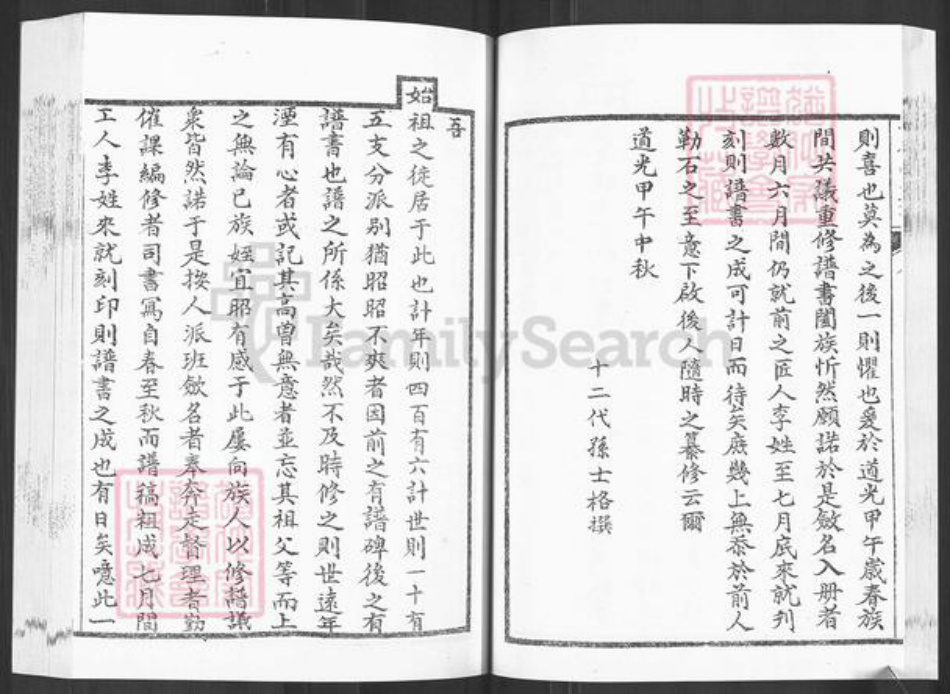 則喜也莫為之後一則懼也爰於道光甲午歲春族
間共議重修譜書闔族忻然願諾於是斂名入册者
數月六月間仍就前之匠人李姓至七月底來就刋
刻則譜書之成可計日而待矣庶幾上無忝於前人
勒石之至意下啟後人隨時之纂修云爾
道光甲午中秋
十二代孫士格撰
吾
始祖之徙居于此也計年則四百有六計世則一十有
五支分派別猶昭昭不爽者因前之有譜碑後之有
譜書也譜之所係大矣哉然不及時修之則世遠年
湮有心者或記其高曾無意者並忘其祖父等而上
之無論已族姪宜昭有感于此屢向族人以修譜議
衆皆然諾于是按人派班斂名者奉奔走督理者勤
催課編修者司書寫自春至秋而譜稿粗成七月間
工人李姓來就刻印則譜書之成也有日矣噫此一
FamilySearch